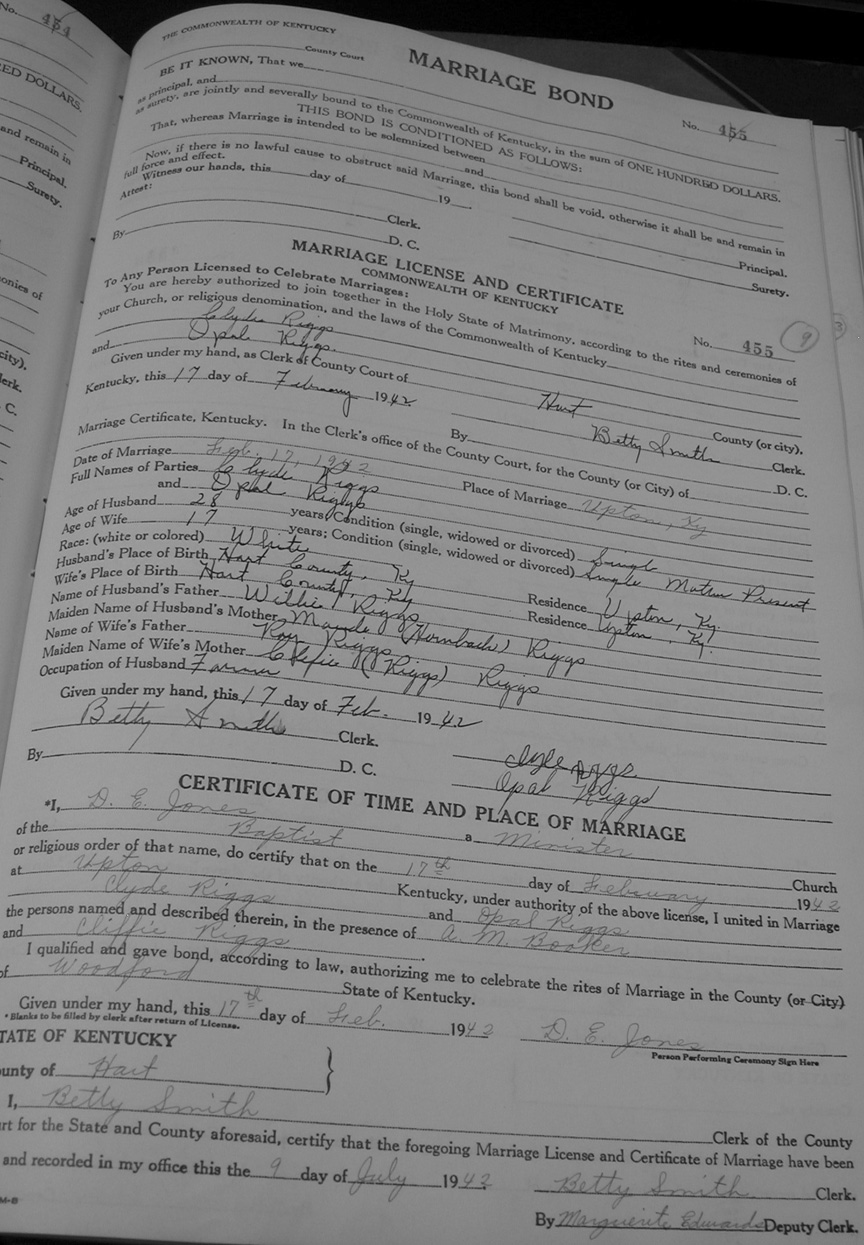 No. 454
RED DOLLARS.
and remain in
Principal.
Surety.
onies of
city).
lerk.
C.
THE COMMONWEALTH OF KENTUCKY
County Court
MARRIAGE BOND
No. 455
BE IT KNOWN, That we
as principal, and
as surety, are jointly and severally bound to the Commonwealth of Kentucky, in the sum of ONE HUNDRED DOLLARS.
THIS BOND IS CONDITIONED AS FOLLOWS:
That, whereas Marriage is intended to be solemnized between
and
Now, if there is no lawful cause to obstruct said Marriage, this bond shall be void, otherwise it shall be and remain in
full force and effect.
Witness our hands, this day of 19
Attest:
Clerk.
Principal.
By D. C.
Surety.
MARRIAGE LICENSE AND CERTIFICATE
COMMONWEALTH OF KENTUCKY
No. 455
9
To Any Person Licensed to Celebrate Marriages:
You are hereby authorized to join together in the Holy State of Matrimony, according to the rites and ceremonies of
your Church, or religious denomination, and the laws of the Commonwealth of Kentucky
Clyde Riggs
and Opal Riggs
Given under my hand, as Clerk of County Court of Hart County (or city),
Kentucky, this 17 day of February 1942 Betty Smith Clerk.
By D. C.
Marriage Certificate, Kentucky. In the Clerk's office of the County Court, for the County (or City) of
Date of Marriage Feb. 17, 1942 Place of Marriage Upton, Ky
Full Names of Parties Clyde Riggs
and Opal Riggs
Age of Husband 28 years; Condition (single, widowed or divorced) Single
Age of Wife 17 years; Condition (single, widowed or divorced) Single Mother Present
Race: (white or colored) White
Husband's Place of Birth Hart County, Ky Residence Upton, Ky.
Wife's Place of Birth Hart County, Ky Residence Upton, Ky.
Name of Husband's Father Willie Riggs
Maiden Name of Husband's Mother Maude (Hornback) Riggs
Name of Wife's Father Roy Riggs
Maiden Name of Wife's Mother Cliffie (Riggs) Riggs
Occupation of Husband Farmer
Given under my hand, this 17 day of Feb. 1942
Betty Smith Clerk.
Clyde Riggs
By D. C.
Opal Riggs
CERTIFICATE OF TIME AND PLACE OF MARRIAGE
*I, D. E. Jones a Minister
of the Baptist Church
or religious order of that name, do certify that on the 17th day of February 1942
at Upton Kentucky, under authority of the above license, I united in Marriage
Clyde Riggs and Opal Riggs
the persons named and described therein, in the presence of A. M. Booker
and Cliffie Riggs.
I qualified and gave bond, according to law, authorizing me to celebrate the rites of Marriage in the County (or City)
of Woodford State of Kentucky.
Given under my hand, this 17th day of Feb. 1942 D. E. Jones
* Blanks to be filled by clerk after return of License.
Person Performing Ceremony Sign Here
TATE OF KENTUCKY
ounty of Hart
I, Betty Smith Clerk of the County
rt for the State and County aforesaid, certify that the foregoing Marriage License and Certificate of Marriage have been
and recorded in my office this the 9 day of July 1942 Betty Smith Clerk.
M-B
By Marguerite Edwards Deputy Clerk.